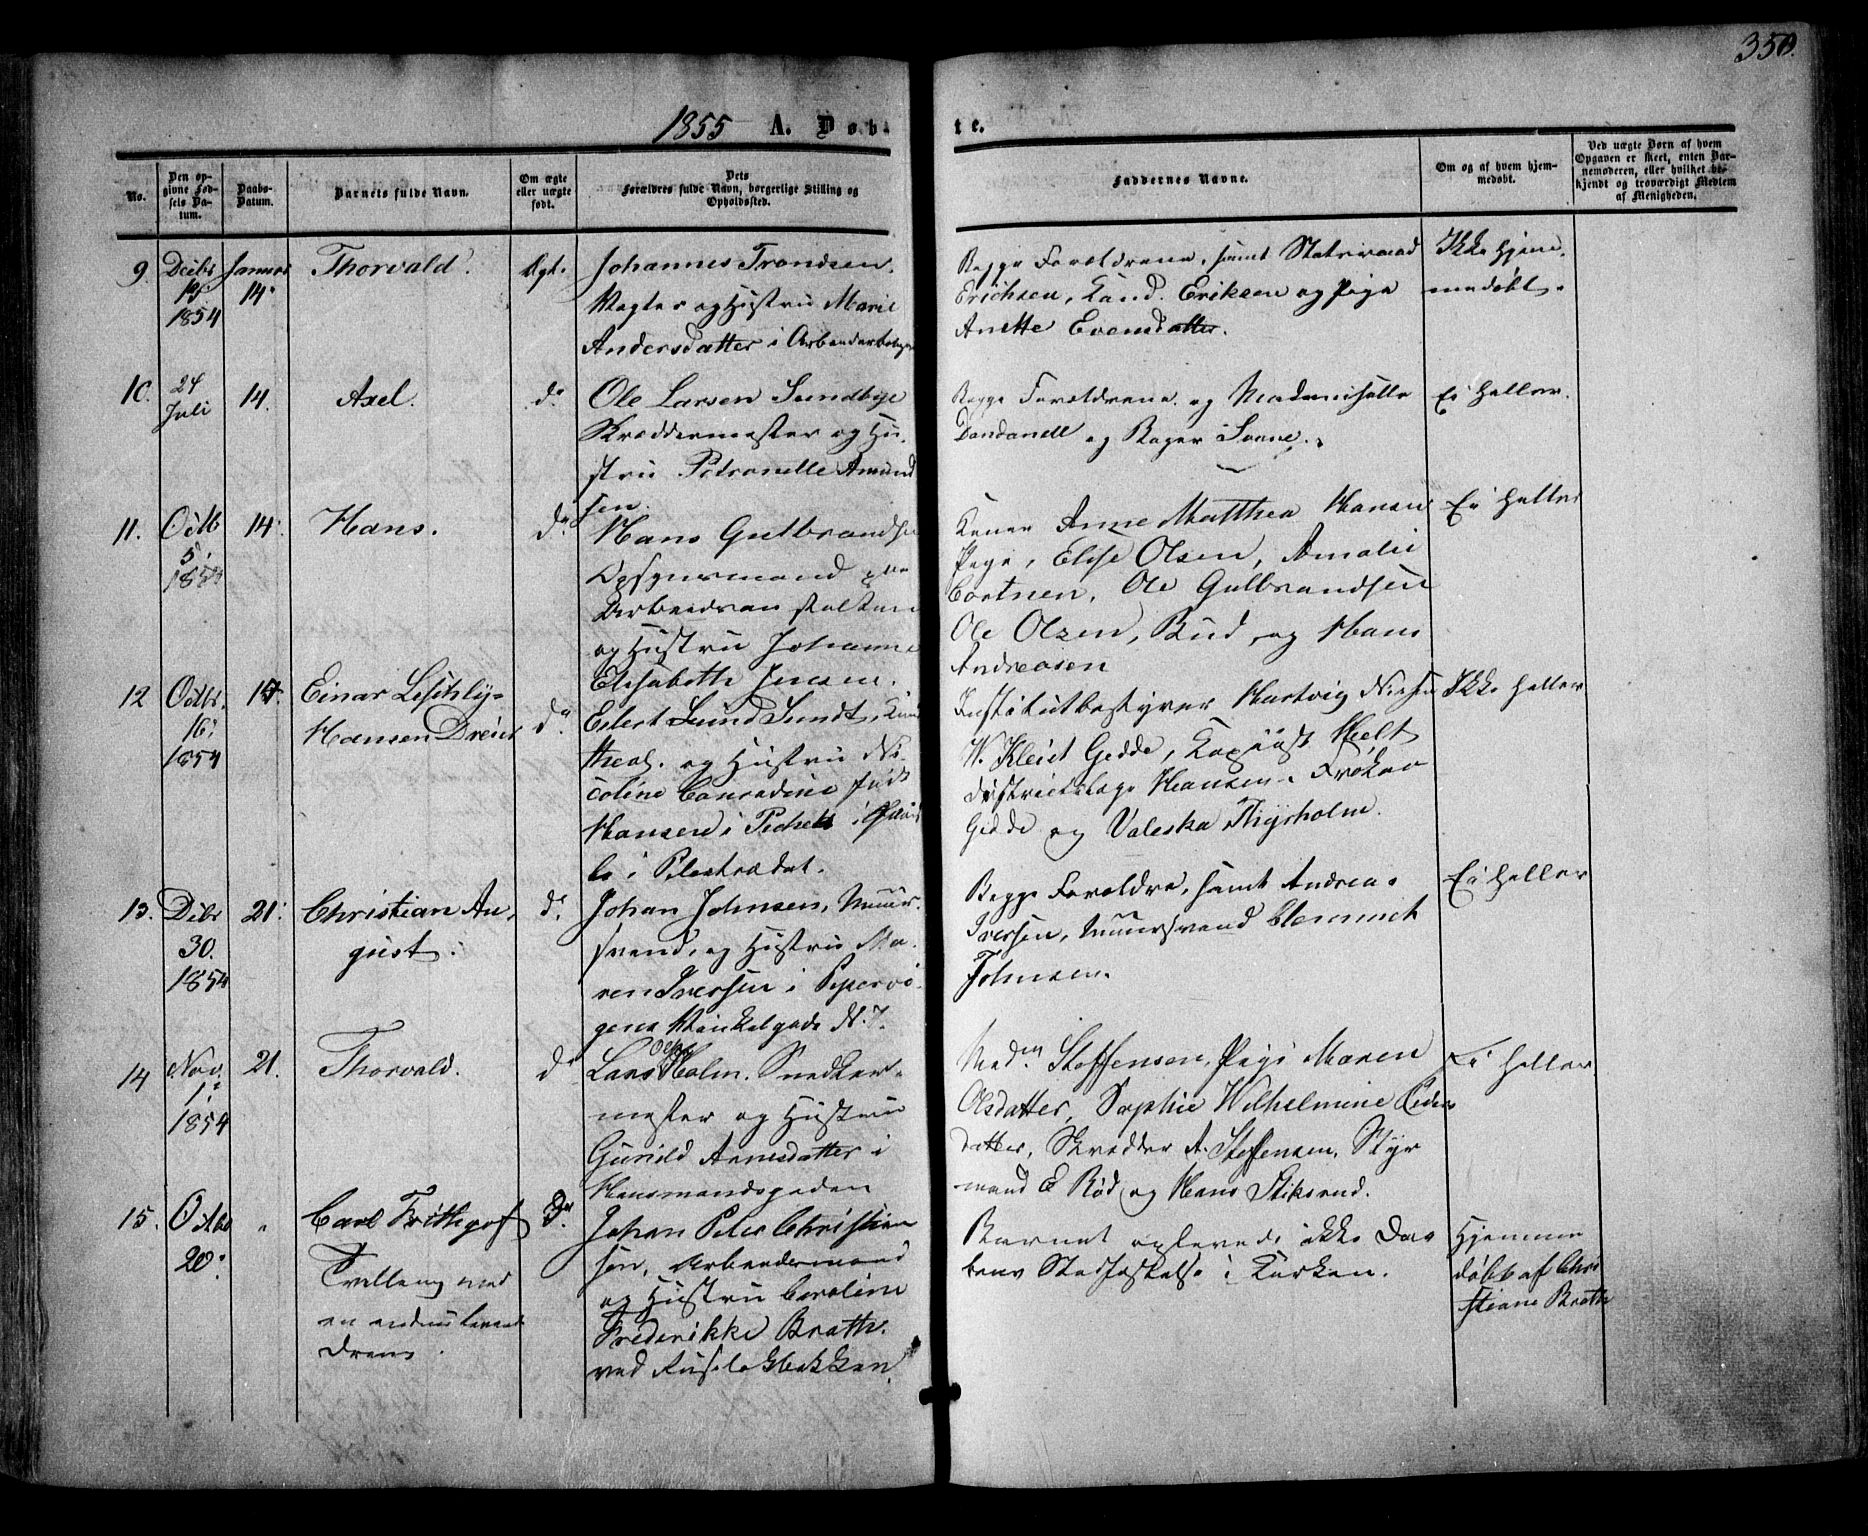 350.
1855 A. Døb-
te.
No.
Den opgivne Fødsels Datum.
Daabs-Datum.
Barnets fulde Navn.
Om ægte eller uægte født.
Dets Forældres fulde Navn, borgerlige Stilling og Opholdssted.
Faddernes Navne.
Om og af hvem hjemmedøbt.
Ved uægte Børn af hvem Opgaven er skeet, enten Barnemoderen, eller hvilket bekjendt og troværdigt Medlem af Menigheden.
9. Decbr 1854
Januar 14.
Thorvald.
Ægt.
Johannes Trondsen.
Vogter og Hustru Marie
Andersdatter i
Begge Forældrene, samt
Erichsen, Cand. Eriksen og Pige
Anette Evensdatter.
Ikke hjem-
medøbt.
10.
24 Juli
14.
Axel.
do
Ole Larsen Sundbye
Skræddermester og Hu-
stru Petronelle Amund
sen.
Begge Forældrene og Mademoiselle
og Bager
Ei heller.
11.
Octb 5. 1854
14.
Hans.
do
Hans Gulbrandsen
Opsynsmand paa
Arbeidsanstalten
og Hustru Johanne
Elisabeth Jensen.
Konen Anne Matthea Hansen
Pige, Elise Olsen, Amalie
Ole Gulbrandsen
Ole Olsen, Bud, og Hans
Andreasen
Ei heller
12
Octbr. 16. 1854
14.
Einar
Hansen Dreier
do
Eilert Lund Sundt, Cand
theol. og Hustru Ni-
coline Conradine født
Hansen i
i Pilestrædet.
Institutbestyrer Hartvig Nissen
W. Kleist Gedde, Copiist Helt
Hansen, Frøken
Gedde og Valeska Thyrholm.
Ikke heller
13.
Decbr 30. 1854
21.
Christian Au-
gust.
do
Johan Johnsen, Muur-
svend, og Hustru Ma-
ren Iversen i Pipervi-
gens Vinkelgade N. 7.
Begge Forældre, samt Andreas
Iversen, Muursvend Clemmet
Johnsen.
Ei heller
14
Nov. 1. 1854
21.
Thorvald.
do
Lars Holm, Snedker-
mester og Hustru
Gunild Arnesdatter i
Huusmandsgaden
Madm Steffensen, Pige Maren
Olsdatter, Sophie Wilhelmine Peders
datter, Skrædder A. Steffensen, Styr
mand E Rød, og Hans Stiksrud.
Ei heller
15.
Octbr 20.
"
Carl Frithjof
Tvilling med
en endnu levende
Dreng.
do
Johan Peter Christian
sen, Arbeidsmand
og Hustru Caroline
Frederikke Brath.
ved Ruseløkbakken.
Barnet oplevede ikke Daa
bens Stadfæstelse i Kirken.
Hjemme
døbt af Chri
stiane Brath